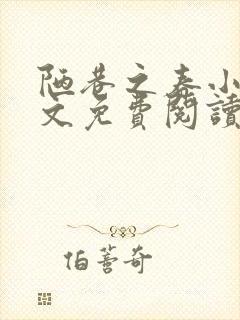 陋巷之春小
文免費閱讀
伯蓍奇